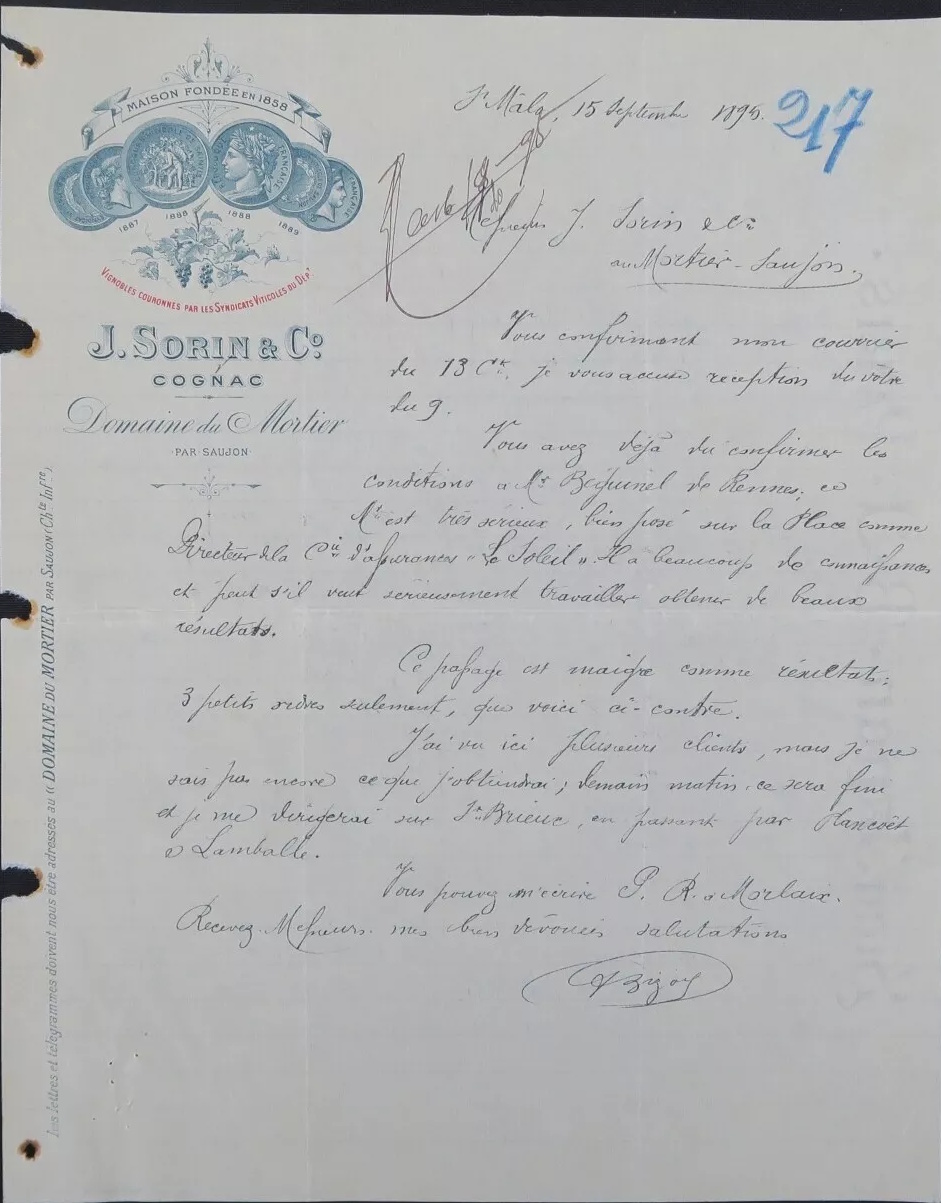 MAISON FONDÉE EN 1858
1887 1888 1888 1889
VIGNOBLES COURONNÉS PAR LES SYNDICATS VITICOLES DU DÉPT
J. SORIN & Co
COGNAC
Domaine du Mortier
PAR SAUJON
Les lettres et télégrammes doivent nous être adressés au « DOMAINE DU MORTIER PAR SAUJON (Chte Infre)
217
St Málo, 15 Septembre 1895.
Messieurs J. Sorin & Cie
au Mortier - Saujon.
Vous confirmant mon courrier
du 13 Ct. je vous accuse reception du vôtre
du 9.
Vous avez déjà du confirmer les
conditions a Mr de Rennes; ce
Mr est très sérieux, bien posé sur la Place comme
Directeur de la Cie d'assurances "Le Soleil". Il a beaucoup de connaissances
et peut s'il veut sérieusement travailler obtenir de beaux
résultats.
Ce passage est maigre comme résultats:
3 petits ordres seulement, que voici ci-contre.
J'ai vu ici plusieurs clients, mais je ne
sais pas encore ce que j'obtiendrai; demain matin ce sera fini
et je me dirigerai sur St Brieuc, en passant par Plancoët
& Lamballe.
Vous pouvez m'écrire P. R. à Morlaix.
Recevez Messieurs mes bien dévouées salutations